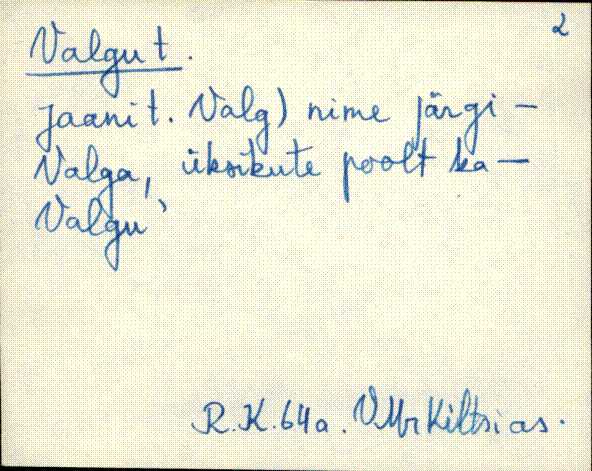 2
Valgu t.
Jaani t. Valg) nime järgi –
Valga, üksikute poolt ka –
Valgu'
R.K. 64a. VMr Kiltsi as.